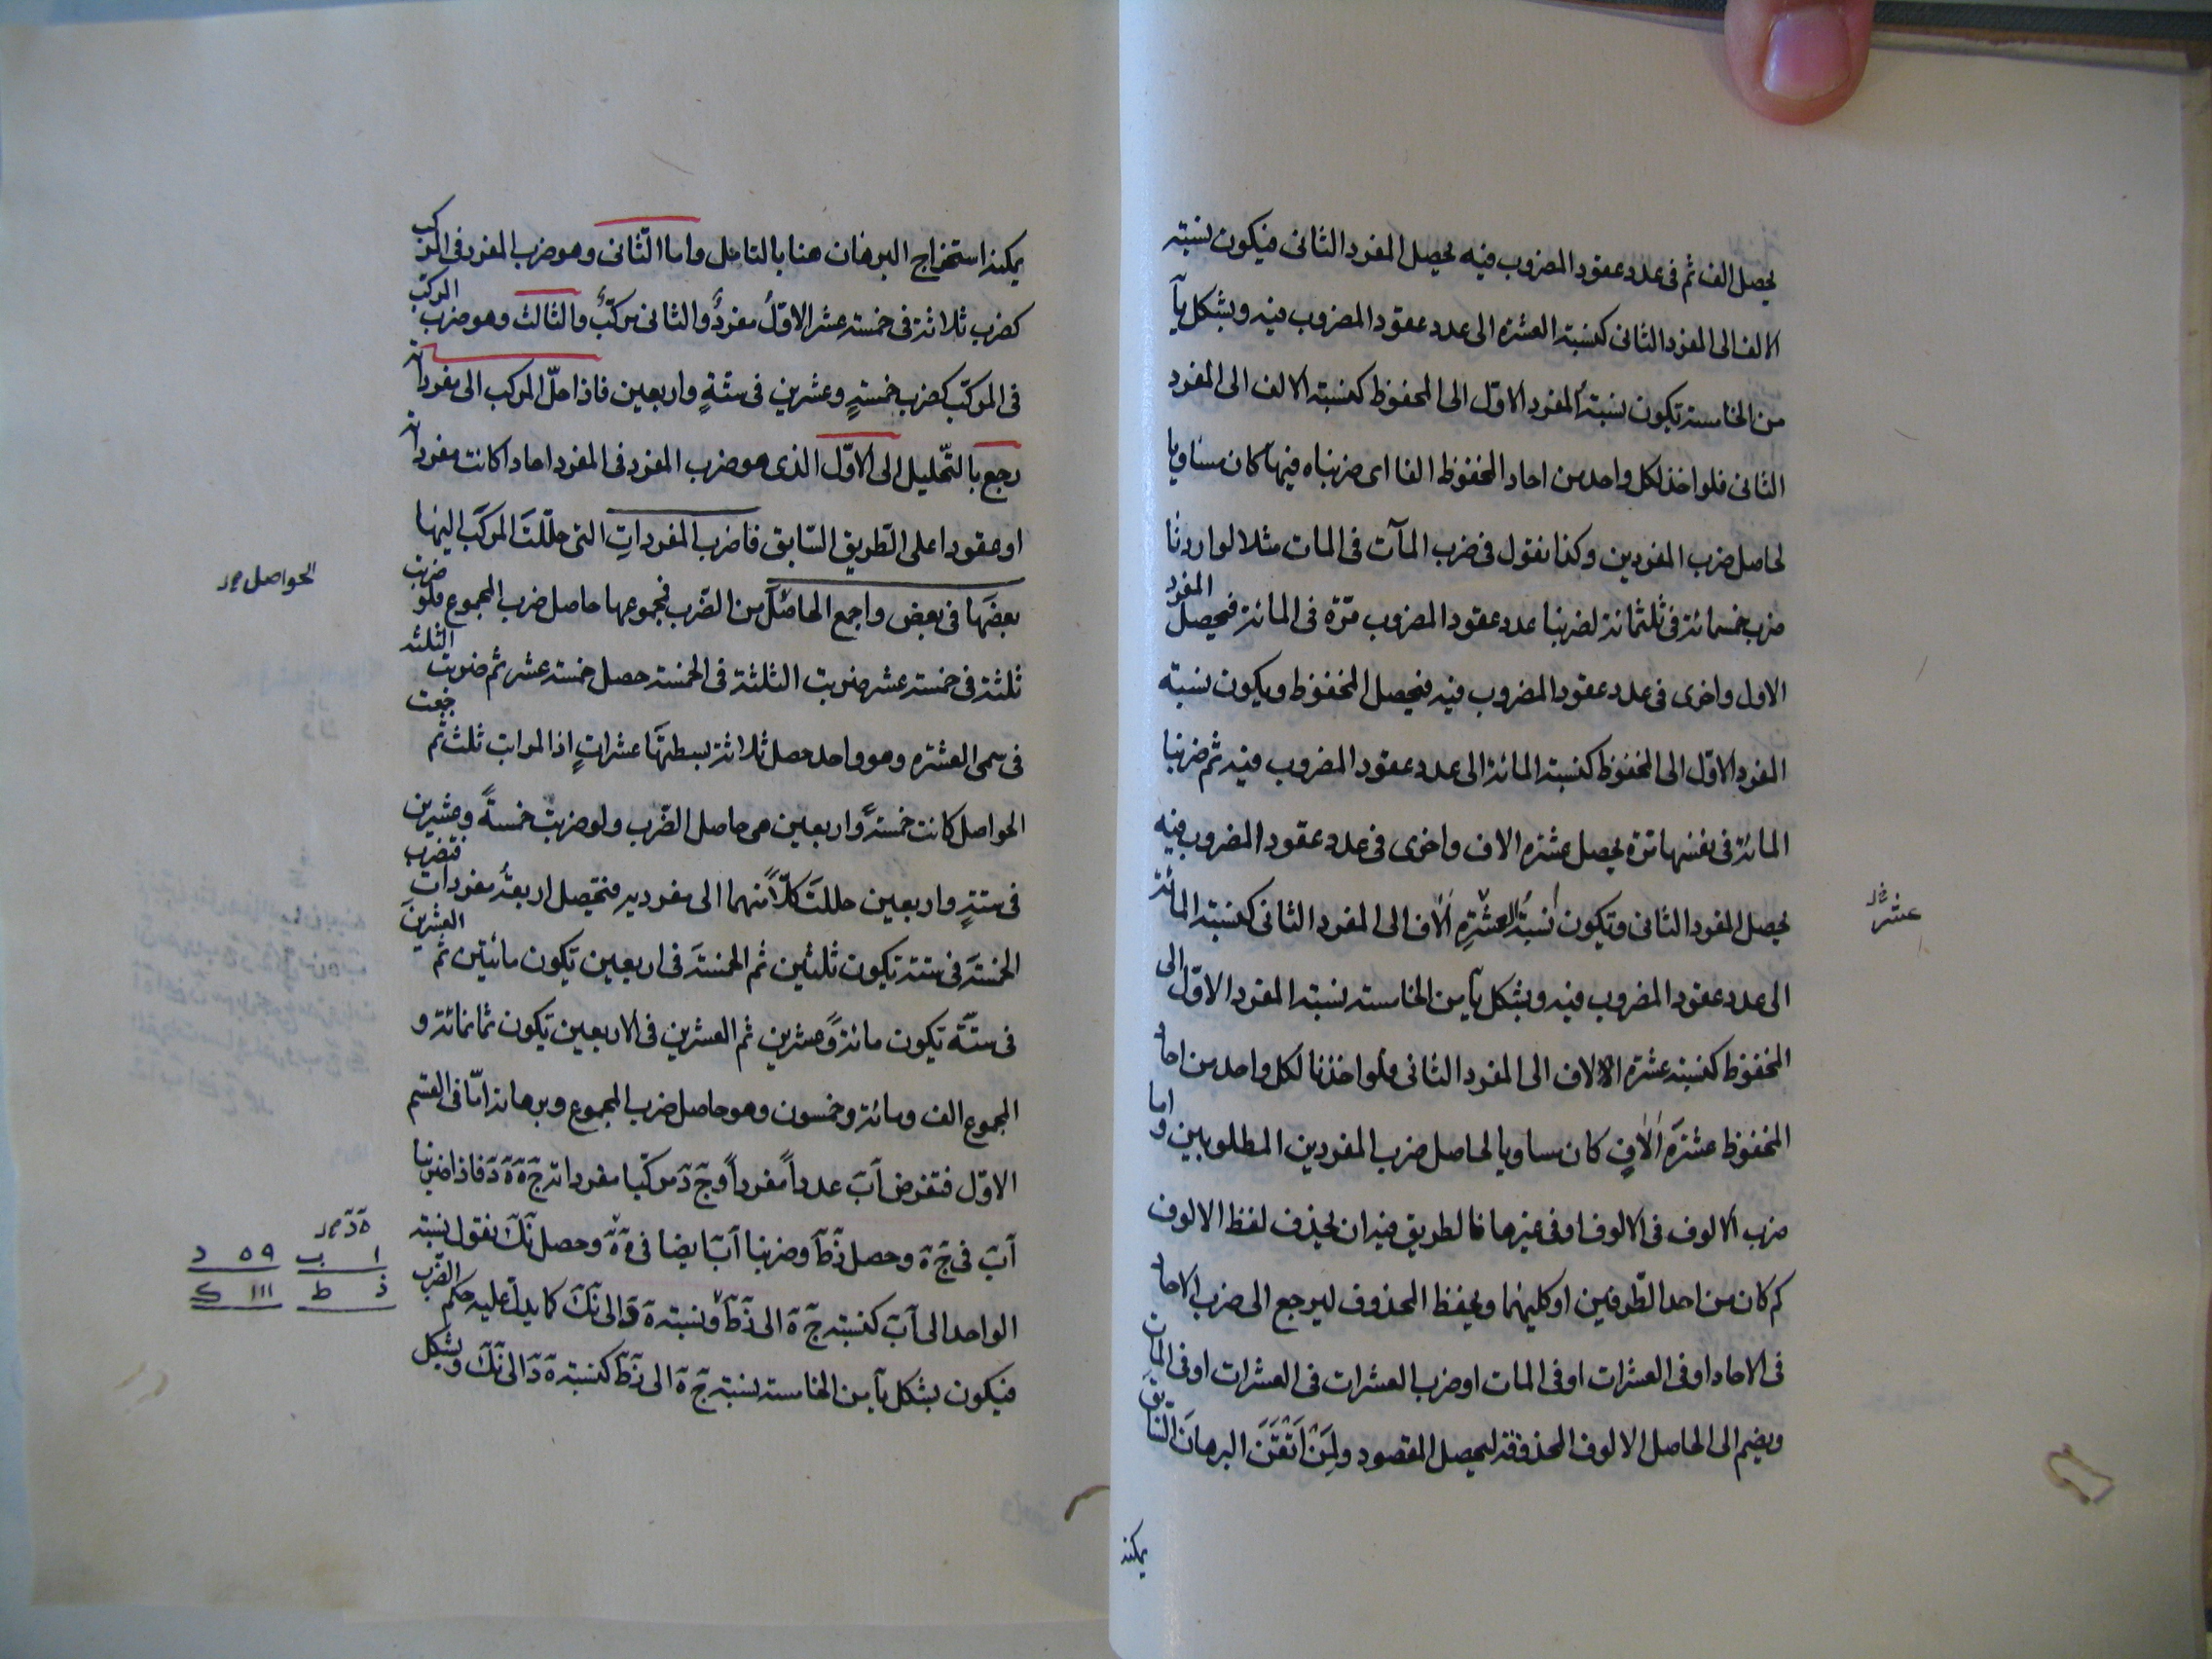 يحصل الف ثم فى عدد عقود المضروب فيه يحصل المفرد الثانى فيكون نسبته
الالف الى المفرد الثانى كنسبته العشرة الى عدد عقود المضروب فيه وبشكل يآ
من الخامسة تكون نسبة المفرد الاوّل الى المحفوظ كنسبته الالف الى المفرد
الثانى فلو اخذ لكل واحد من احاد المحفوظ الفا اى ضربناه فيها كان مساويا
لحاصل ضرب المفردين وكذا نقول فى ضرب المآت فى المات مثلا لو اردنا
ضرب خسمائة فى ثلثمائة لضربنا عدد عقود المضروب مرّة فى المائة فيحصل المفرد
الاول واخرى فى عدد عقود المضروب فيه فيحصل المحفوظ ويكون نسبة
المفرد الاوّل الى المحفوظ كنسبة المائة الى عدد عقود المضروب فيه ثم ضربنا
المائة فى نفسها مرّة يحصل عشرة الاف واخرى فى عدد عقود المضروب فيه
يحصل المفرد الثانى وتكون نسبة العشرة الاف الى المفرد الثانى كنسبته المائة
الى عدد عقود المضروب فيه وبشكل يآ من الخامسة نسبة المفرد الاوّل الى
المحفوظ كنسبته عشرة الالاف الى المفرد الثانى فلو اخذنا لكل واحد من احاد
المحفوظ عشرة الافٍ كان مساويا لحاصل ضرب المفردين المطلوبين واما
ضرب الالوف فى الالوف او فى غيرها فالطريق فيه ان يحذف لفظ الالوف
كم كان من احد الطّرفين او كليهما ويحفظ المحذوف ليرجع الى ضرب الاحاد
فى الاحاد او فى العشرات او فى المات او ضرب العشرات فى العشرات او فى المات
ويضم الى الحاصل الالوف المحذوفة ليحصل المقصود ولمن اتقن البرهان السّابق
يمكنه
يمكنه استخراج البرهان هنا بالتامل واما الثّانى وهو ضرب المفرد فى المركب
كضرب ثلاثة فى خمسة عشر الاوّلُ مفردٌ والثانى مركّبٌ والثّالث وهو ضرب المركّب
فى المركّب كضرب خمسةٍ وعشرين فى ستّةٍ واربعين فاذا حلّ المركب الى مفرداته
رجع بالتّحليل الى الاوّل الذى هو ضرب المفرد فى المفرد احادا كانت مفرداته
او عقودا على الطّريق السّابق فاضرب المفرداتِ التى حلّلتَ المركَب اليها
بعضَها فى بعض واجمع الحاصلَ من الضّرب فمجموعها حاصل ضرب المجموع فلو ضربت
ثلثة فى خمسة عشر ضربت الثلثة فى الخمسة حصل خمسة عشر ثم ضربت الثلثة
فى سمى العشرة وهو واحد حصل ثلاثة بسطتهَا عشراتٍ اذ المراتب ثلث ثم جمعت
الحواصل كانت خمسةً واربعين هى حاصل الضّرب ولو ضربت خمسةً وعشرين
فى ستةٍ واربعين حللتَ كلّاً منهما الى مفرديه فتحصل اربعةُ مفرداتٍ فتضرب
الخمسةَ فى ستة تكون ثلثين ثم الخمسةَ فى اربعين تكون مائتين ثم العشرينَ
فى ستّة تكون مائةً وعشرين ثم العشرين فى الاربعين تكون ثمانمائة و
المجموع الف ومائة وخمسون وهو حاصل ضرب المجموع وبرهانه امّا فى القسم
الاوّل فنفرض آبَ عدداً مفرداً وجَ دَ مركّبا مفرداته جَ ةَ ةَ دَ فاذا ضربنا
آبَ فى جَ ةَ وحصل زَطَ وضربنا آبَ ايضا فى ةَ دَ وحصل نَكَ نقول نسبته
الواحد الى آبَ كنسبته جَ ةَ الى زَطَ ونسبته ةَ دَ الى نَكَ كما يدل عليه حكم الضّرب
فيكون بشكل يآ من الخامسة نسبته جَ ةَ الى زَطَ كنسبته ةَ دَ الى نَكَ وبشكل
الحواصل
ا ب ٥٩ د
ز ط ااا ك